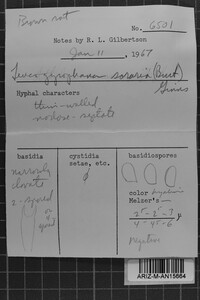 Brown rot
No. 6501
Notes by R. L. Gilbertson
Jan 11, 1967
Leucogyrophana sororia (Burt)
Ginns
Hyphal characters
thin-walled
nodose-septate
basidia
cystidia
setae, etc.
basidiospores
narrowly
clavate
2-spored
or 4
spored
φ
color hyaline
Melzer's -
negative
ARIZ-M-AN15664